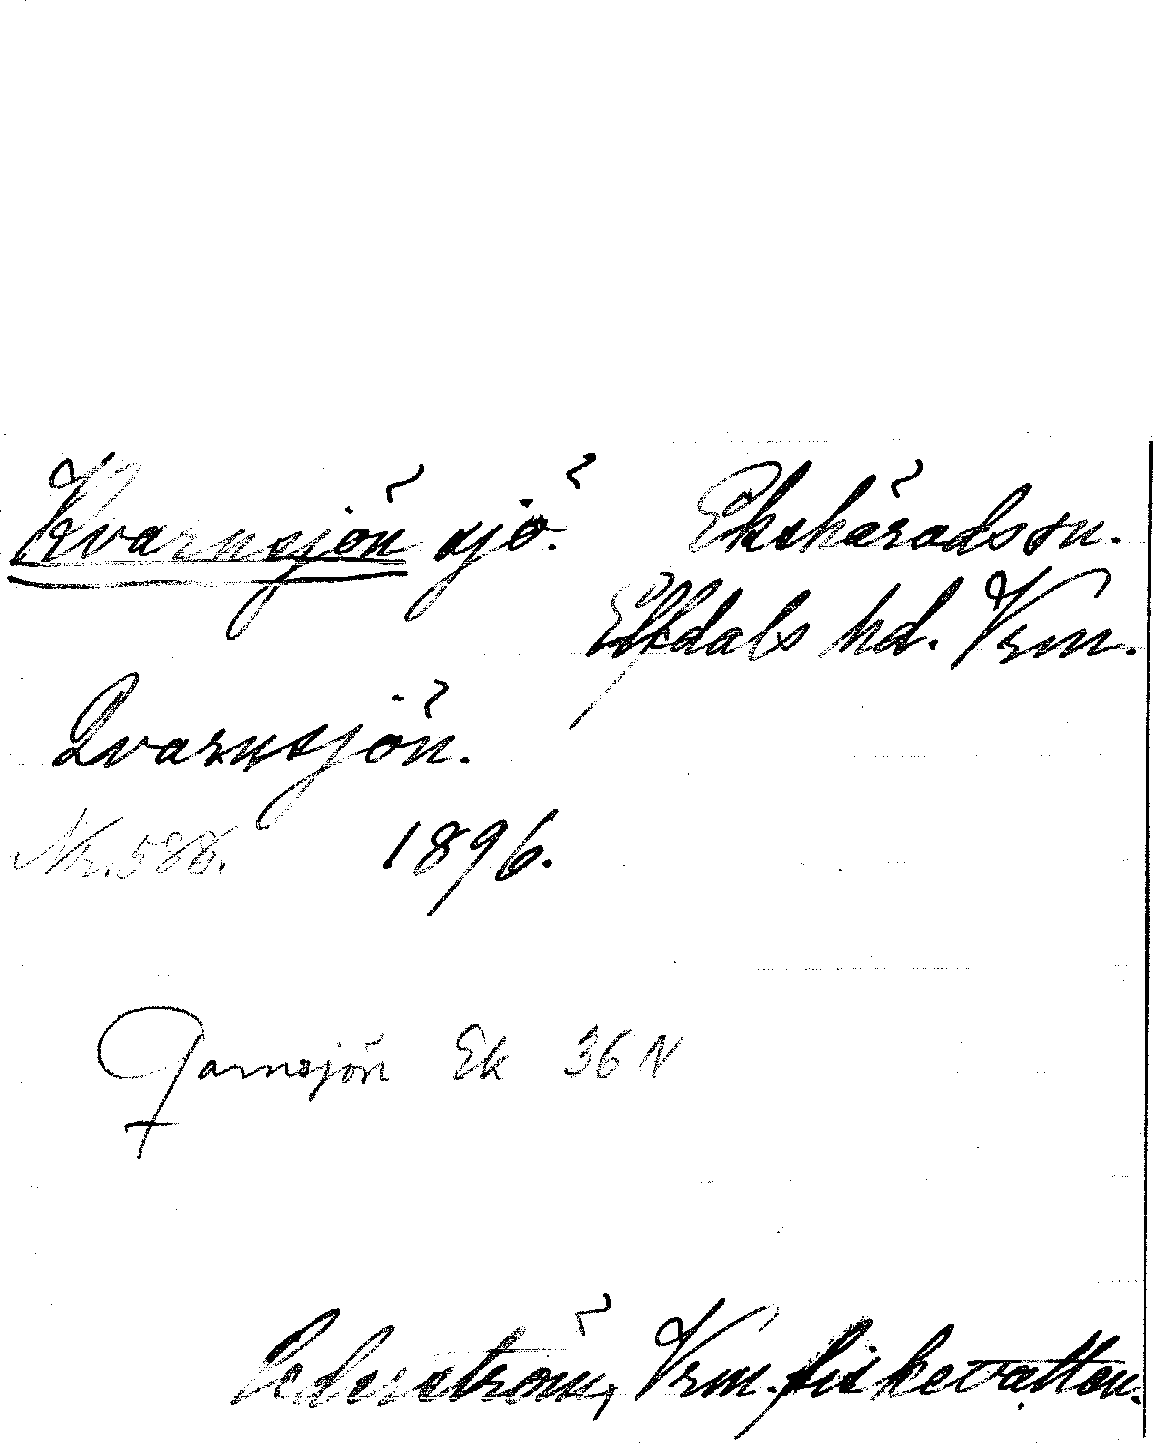 Kvarnsjön sjö. Ekshärads sn.
Elfdals hd. Vrm.
Qvarnsjön.
Nr. 588. 1896.
Qarnsjön Ek 36 N
Cederström, Vrm. fiskevatten.